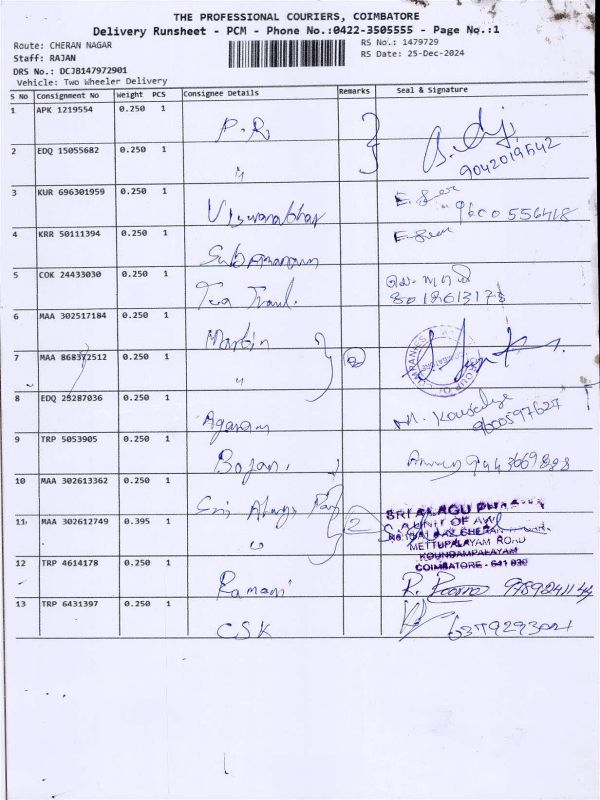 THE PROFESSIONAL COURIERS, COIMBATORE
Delivery Runsheet - PCM - Phone No.:0422-3505555 - Page No.:1
Route: CHERAN NAGAR
RS No.: 1479729
Staff: RAJAN
RS Date: 25-Dec-2024
DRS No.: DCJ8147972901
Vehicle: Two Wheeler Delivery
S No Consignment No Weight PCS Consignee Details Remarks Seal & Signature
1 APK 1219554 0.250 1 P.R
2 EDQ 15055682 0.250 1 " 9042019542
3 KUR 696301959 0.250 1
9600556418
4 KRR 50111394 0.250 1
5 COK 24433030 0.250 1
8012613178
6 MAA 302517184 0.250 1 Martin
7 MAA 868372512 0.250 1 " 2
8 EDQ 25287036 0.250 1 Agaram 9600597627
9 TRP 5053905 0.250 1 9443669888
10 MAA 302613362 0.250 1 Sri
11 MAA 302612749 0.395 1 " 2
SRI ALAGU
A UNIT OF
METTUPALAYAM ROAD
KOUNDAMPALAYAM
COIMBATORE - 641 030
12 TRP 4614178 0.250 1 Ramani R. 9789241144
13 TRP 6431397 0.250 1 CSK 6379293021